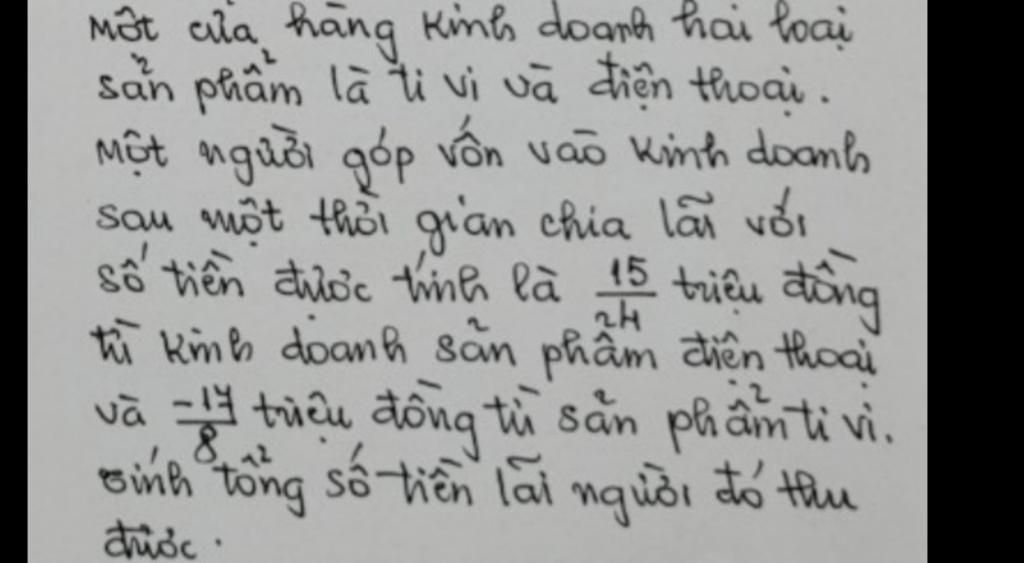 Một cửa hàng kinh doanh hai loại
sản phẩm là ti vi và điện thoại.
Một người góp vốn vào kinh doanh
sau một thời gian chia lãi với
số tiền được tính là 15/24 triệu đồng
từ kinh doanh sản phẩm điện thoại
và -17/8 triệu đồng từ sản phẩm ti vi.
tính tổng số tiền lãi người đó thu
được.